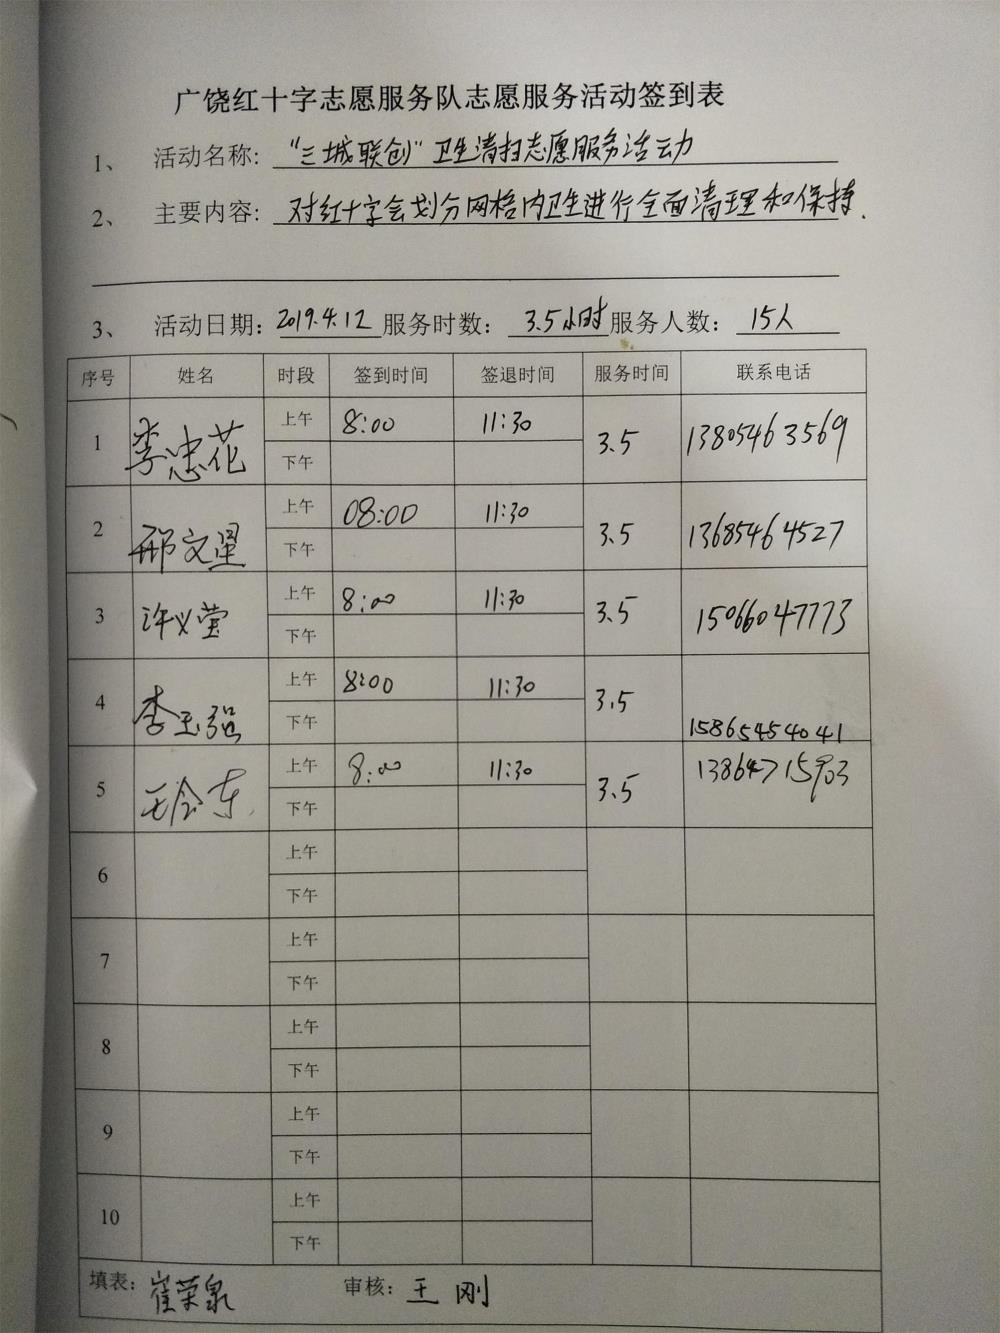 广饶红十字志愿服务队志愿服务活动签到表
1、 活动名称: “三城联创”卫生清扫志愿服务活动
2、 主要内容: 对红十字会划分网格内卫生进行全面清理和保持.
3、 活动日期: 2019.4.12 服务时数: 3.5小时 服务人数: 15人
序号 姓名 时段 签到时间 签退时间 服务时间 联系电话
1 李忠花 上午 8:00 11:30 3.5 13805463569
下午
2 邢文星 上午 08:00 11:30 3.5 13685464527
下午
3 许义莹 上午 8:00 11:30 3.5 15066047773
下午
4 李玉强 上午 8:00 11:30 3.5 15865454041
下午
5 王金东 上午 8:00 11:30 3.5 13864715903
下午
6 上午
下午
7 上午
下午
8 上午
下午
9 上午
下午
10 上午
下午
填表: 崔荣泉 审核: 王刚